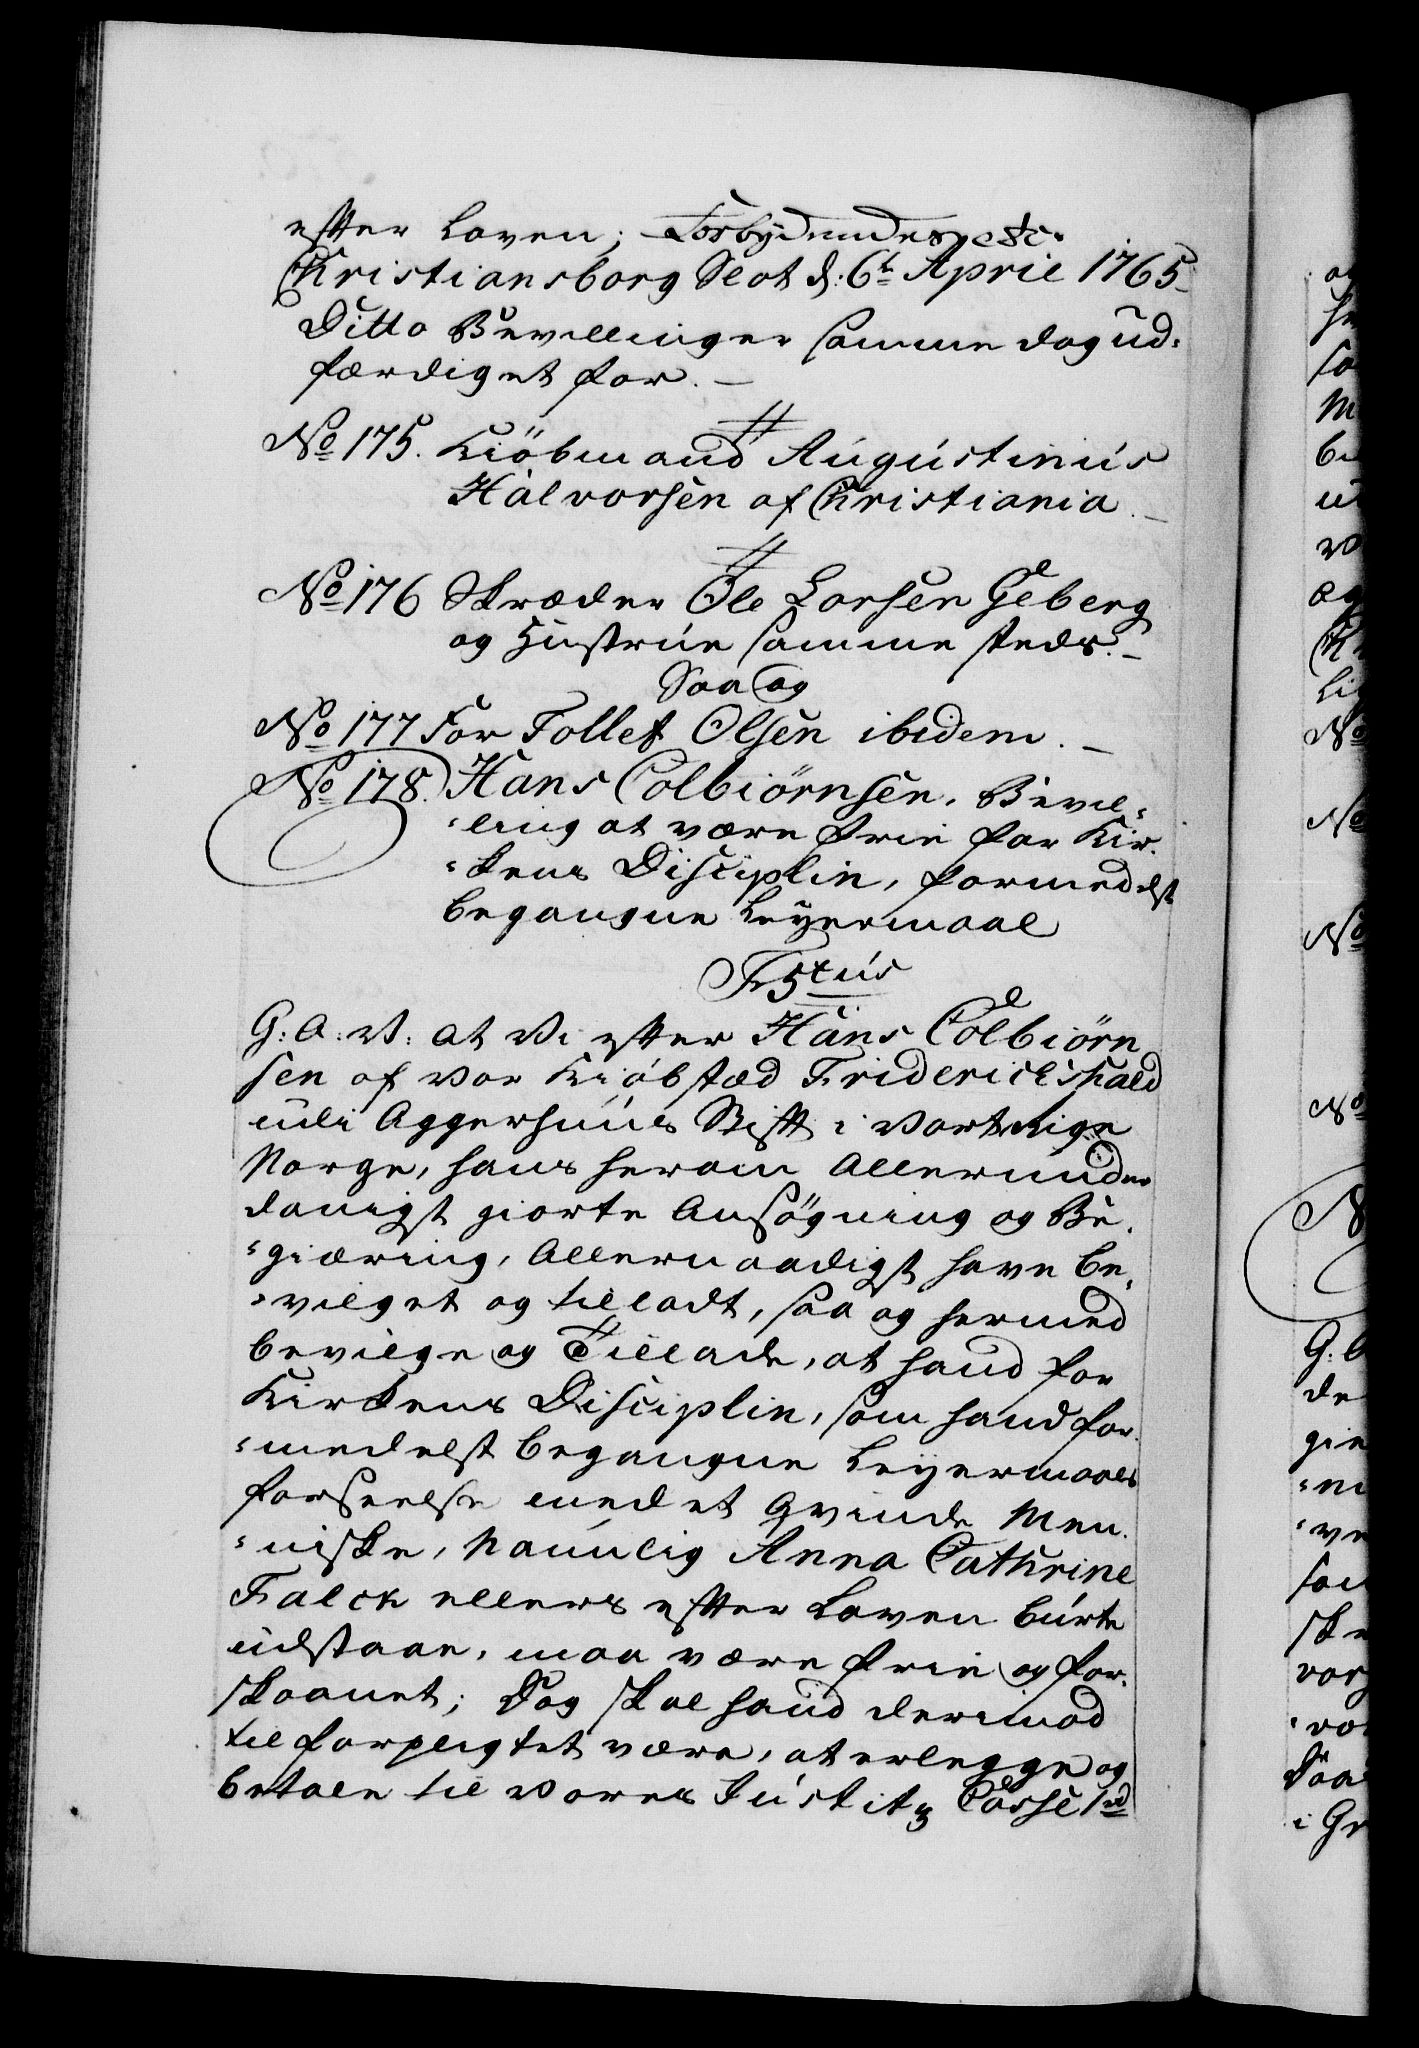 efter Loven; Forbydendes etc.
Christiansborg Slot d: 6t April 1765.
Ditto Bevillinger samme dag ud-
færdiget for. —
No 175. Kiöbmand Augustinus
Halvorsen af Christiania. —
No 176 Skræder Ole Larsen Geberg
og Hustrue samme steds. —
Saa og
No 177 For Tollef Olsen ibidem. —
No 178. Hans Colbiörnsen, Bevil-
-ling at være frie for Kir-
-kens Disciplin, formedelst
begangne Leyermaal
F. 5tus
G: A: V: at Vi efter Hans Colbiörn
sen af Vor Kiöbstæd Friderichshald
udi Aggershuus Stift i Vort Rige
Norge, hans herom Allerunder
danigst giorte Ansögning og Be-
-giæring, Allernaadigst have be-
-vilget og tilladt, saa og hermed
bevilge og Tillade, at hand for
Kirkens Disciplin, som hand for-
-medelst begangne Leyermaals
forseelse med et Qvinde Men-
-niske, Navnlig Anna Cathrine
Falck ellers efter Loven burte
udstaae, maa være frie og for-
skaanet; Dog skal hand derimod
til forpligtet være, at erlegge og
betale til Vores Justitz Casse 1rd